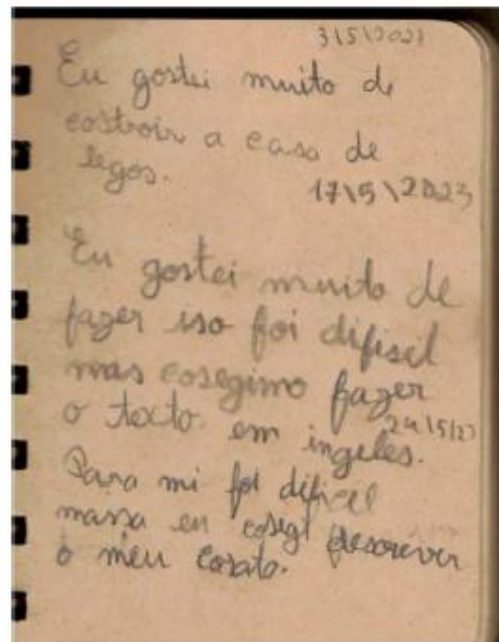 3\5\2023
Eu gostei muito de
costroir a casa de
legos.
17\5\2023
Eu gostei muito de
fazer iso foi difisil
mas cosegimo fazer
o texto em ingeles.
24\5\23
Para mi foi dificel
massa eu cosegi descrever
o meu